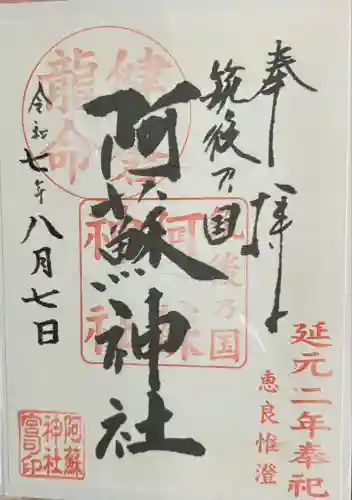 奉拝
筑後乃国
阿蘇神社
令和七年八月七日
健磐
龍命
筑後乃国
阿蘇
神社
延元二年奉祀
恵良惟澄
阿蘇
神社
宮司印